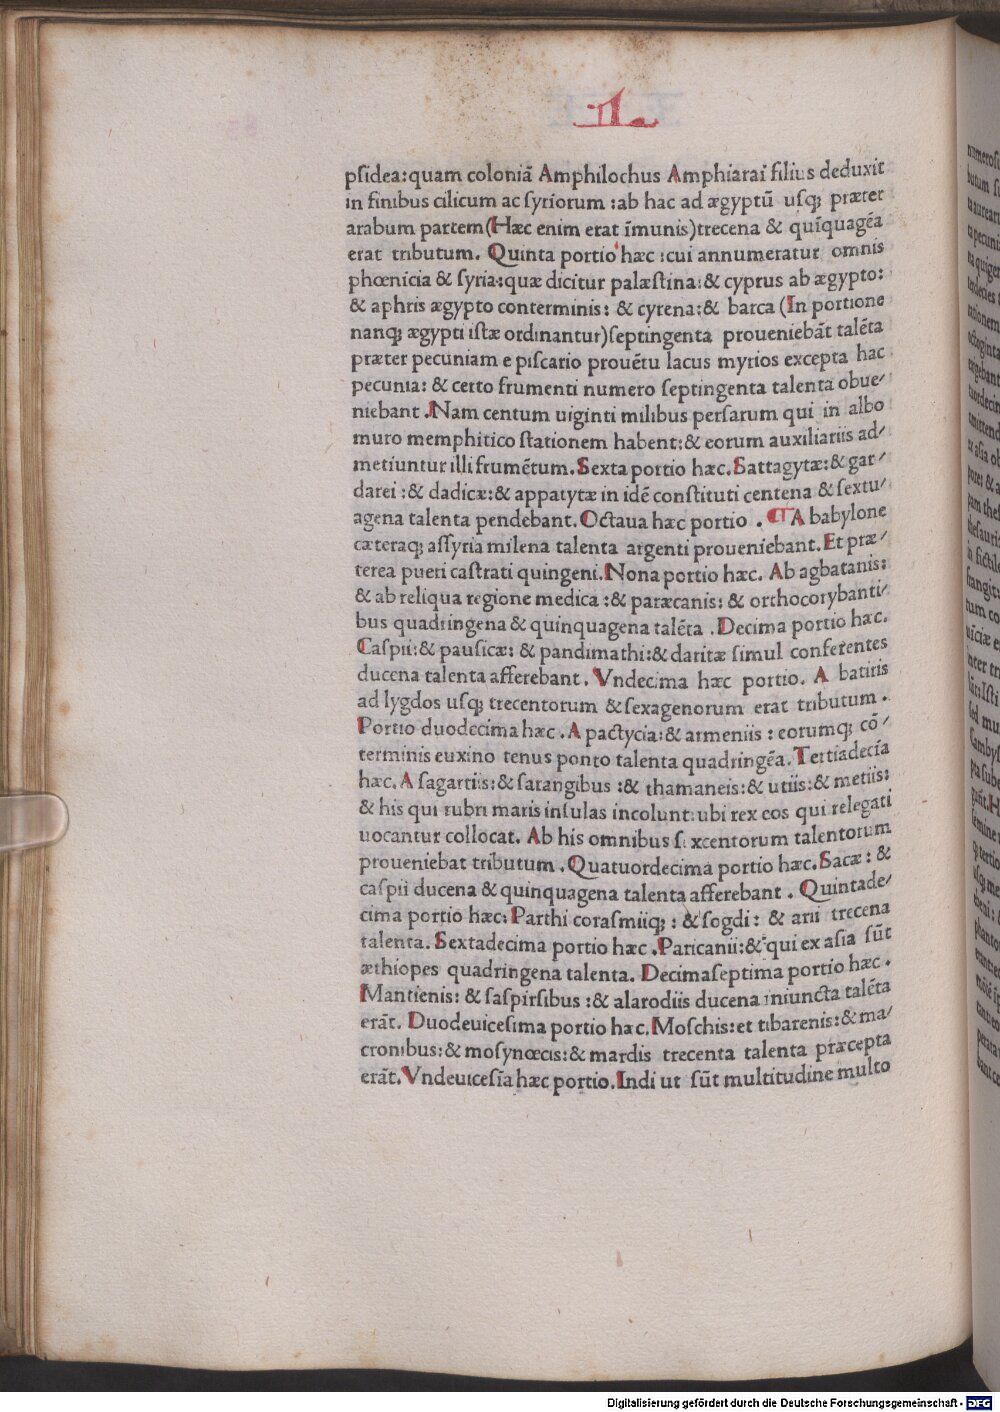 L
psidea:quam coloniā Amphilochus Amphiarai filius deduxit
in finibus cilicum ac syriorum :ab hac ad ægyptū usq; præter
arabum partem(Hæc enim erat īmunis)trecena & quīquagēa
erat tributum. Quinta portio hæc :cui annumeratur omnis
phœnicia & syria:quæ dicitur palæstina:& cyprus ab ægypto:
& aphris ægypto conterminis: & cyrena:& barca (In portione
nanq; ægypti istæ ordinantur)septingenta proueniebāt talēta
præter pecuniam e piscario prouētu lacus myrios excepta hac
pecunia: & certo frumenti numero septingenta talenta obue/
niebant .Nam centum uiginti milibus persarum qui in albo
muro memphitico stationem habent:& eorum auxiliariis ad/
metiuntur illi frumētum. Sexta portio hæc. Sattagytæ:& gar/
darei :& dadicæ:& appatytæ in idē constituti centena & sextu/
agena talenta pendebant. Octaua hæc portio . A babylone
cæteraq; assyria milena talenta argenti proueniebant. Et præ/
terea pueri castrati quingeni. Nona portio hæc. Ab agbatanis:
& ab reliqua regione medica :& paræcanis: & orthocorybanti/
bus quadringena & quinquagena talēta . Decima portio hæc.
Caspii:& pausicæ: & pandimathi:& daritæ simul conferentes
ducena talenta afferebant. Vndecima hæc portio. A batiris
ad lygdos usq; trecentorum & sexagenorum erat tributum .
Portio duodecima hæc . A pactycia:& armeniis : eorumq; cō/
terminis euxino tenus ponto talenta quadringēa. Tertiadecīa
hæc. A sagartiis:& sarangibus :& thamaneis:& utiis:& metiis:
& his qui rubri maris insulas incolunt:ubi rex eos qui relegati
uocantur collocat. Ab his omnibus sexcentorum talentorum
proueniebat tributum . Quatuordecima portio hæc. Sacæ : &
caspii ducena & quinquagena talenta afferebant . Quintade/
cima portio hæc: Parthi corasmiiq; : & sogdi: & arii trecena
talenta. Sextadecima portio hæc . Paricanii:& qui ex asia sūt
æthiopes quadringena talenta. Decimaseptima portio hæc .
Mantienis: & saspirsibus :& alarodiis ducena iniuncta talēta
erāt. Duodeuicesima portio hæc. Moschis:et tibarenis:& ma/
cronibus:& mosynœcis:& mardis trecenta talenta præcepta
erāt. Vndeuicesīa hæc portio. Indi ut sūt multitudine multo
Digitalisierung gefördert durch die Deutsche Forschungsgemeinschaft - DFG